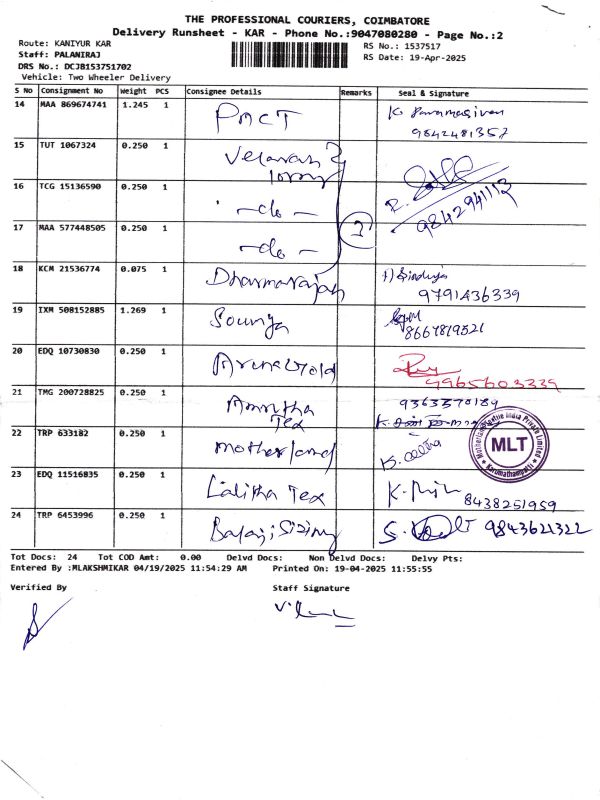 THE PROFESSIONAL COURIERS, COIMBATORE
Delivery Runsheet - KAR - Phone No.:9047080280 - Page No.:2
Route: KANIYUR KAR
RS No.: 1537517
Staff: PALANIRAJ
RS Date: 19-Apr-2025
DRS No.: DCJB153751702
Vehicle: Two Wheeler Delivery
S No Consignment No Weight PCS Consignee Details Remarks Seal & Signature
14 MAA 869674741 1.245 1 PACT K. Paramasivan
9842481357
15 TUT 1067324 0.250 1 Velavan
lorry
16 TCG 15136590 0.250 1 - do - 9842941113
17 MAA 577448505 0.250 1 - do -
18 KCM 21536774 0.075 1 Dharmarajan
9791436339
19 IXM 508152885 1.269 1 Sounya
8667819521
20 EDQ 10730830 0.250 1 Arun Gold
9965603339
21 TMG 200728825 0.250 1 Amritha 9363570189
Tex
22 TRP 633182 0.250 1 motherland
MLT
Karumathampatti
23 EDQ 11516835 0.250 1 Lalitha Tex 8438251959
24 TRP 6453996 0.250 1 Balaji Sizing 9843621322
Tot Docs: 24 Tot COD Amt: 0.00 Delvd Docs: Non Delvd Docs: Delvy Pts:
Entered By :MLAKSHMIKAR 04/19/2025 11:54:29 AM Printed On: 19-04-2025 11:55:55
Verified By Staff Signature